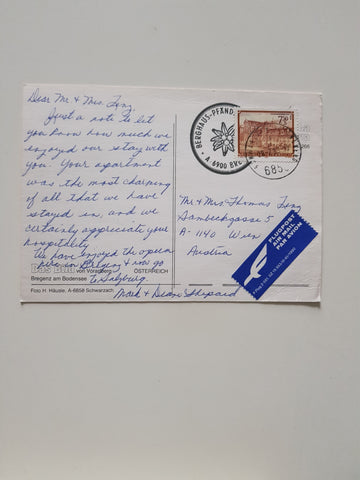 Dear Mr & Mrs. Linz,
Just a note to let
you know how much we
enjoyed our stay with
you. Your apartment
was the most charming
of all that we have
stayed in, and we
certainly appreciate your
hospitality.
We have enjoyed the opera
here in Bregenz & now go
to Salzburg.
Mark & Diane Shepard
von Vorarlberg ÖSTERREICH
Bregenz am Bodensee
Foto H. Häusle, A-6858 Schwarzach
BERGHAUS-PFÄND
A 6900
685
Mr & Mrs Thomas
5
A-1140 Wien
Austria
FLUGPOST
AIR MAIL
PAR AVION